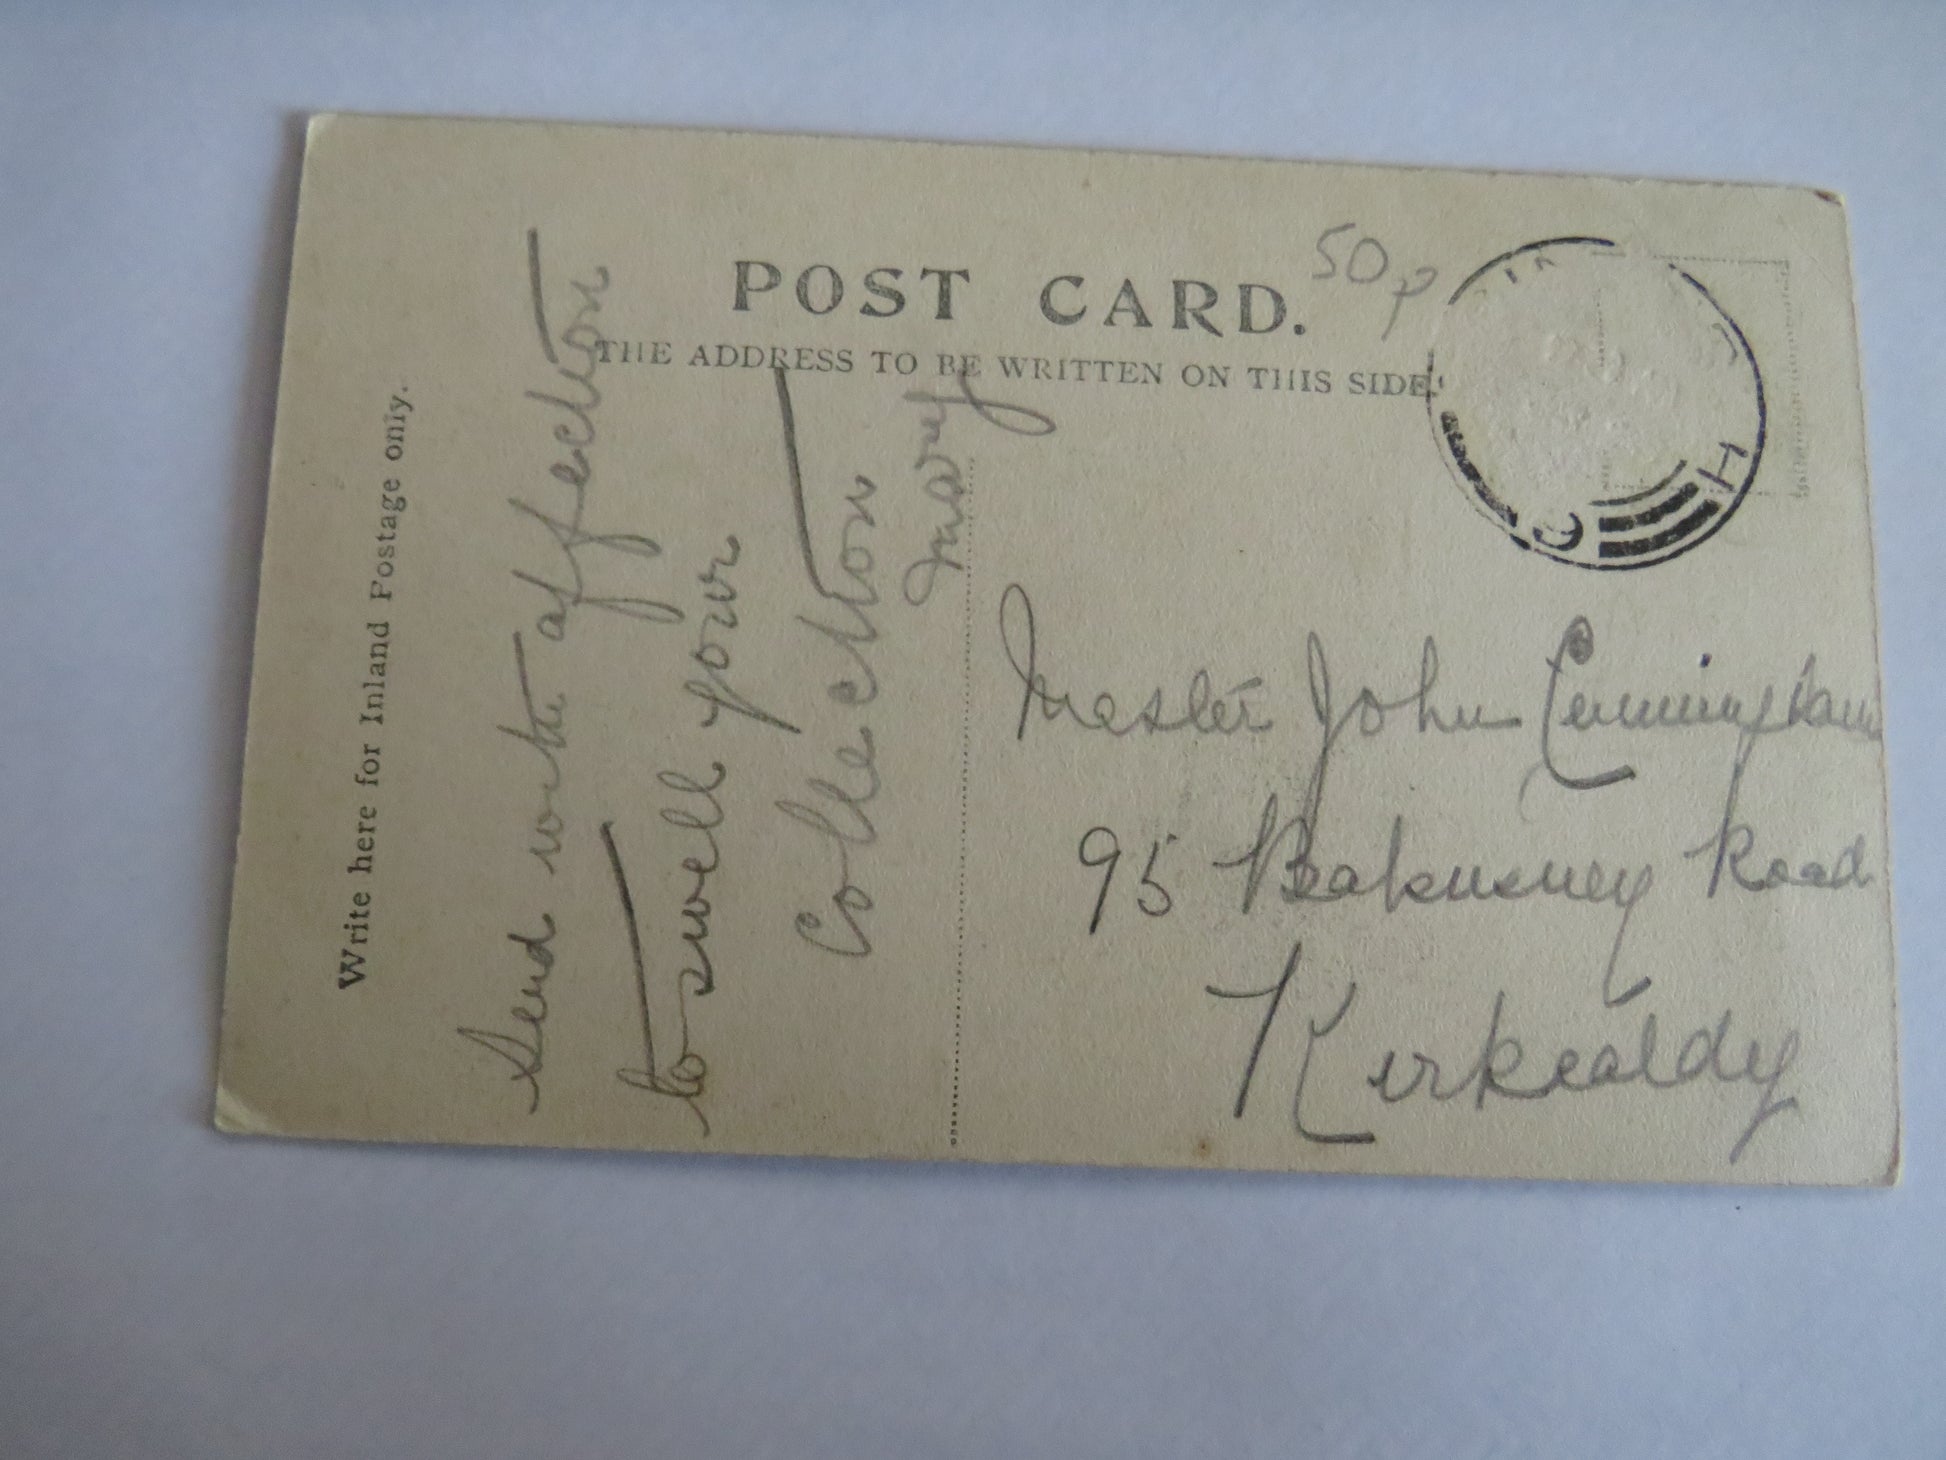 POST CARD.
50p
THE ADDRESS TO BE WRITTEN ON THIS SIDE.
Write here for Inland Postage only.
Send with affection
to swell your
Collection
Mary
Mester John Cunningham
95 Road
Kirkcaldy